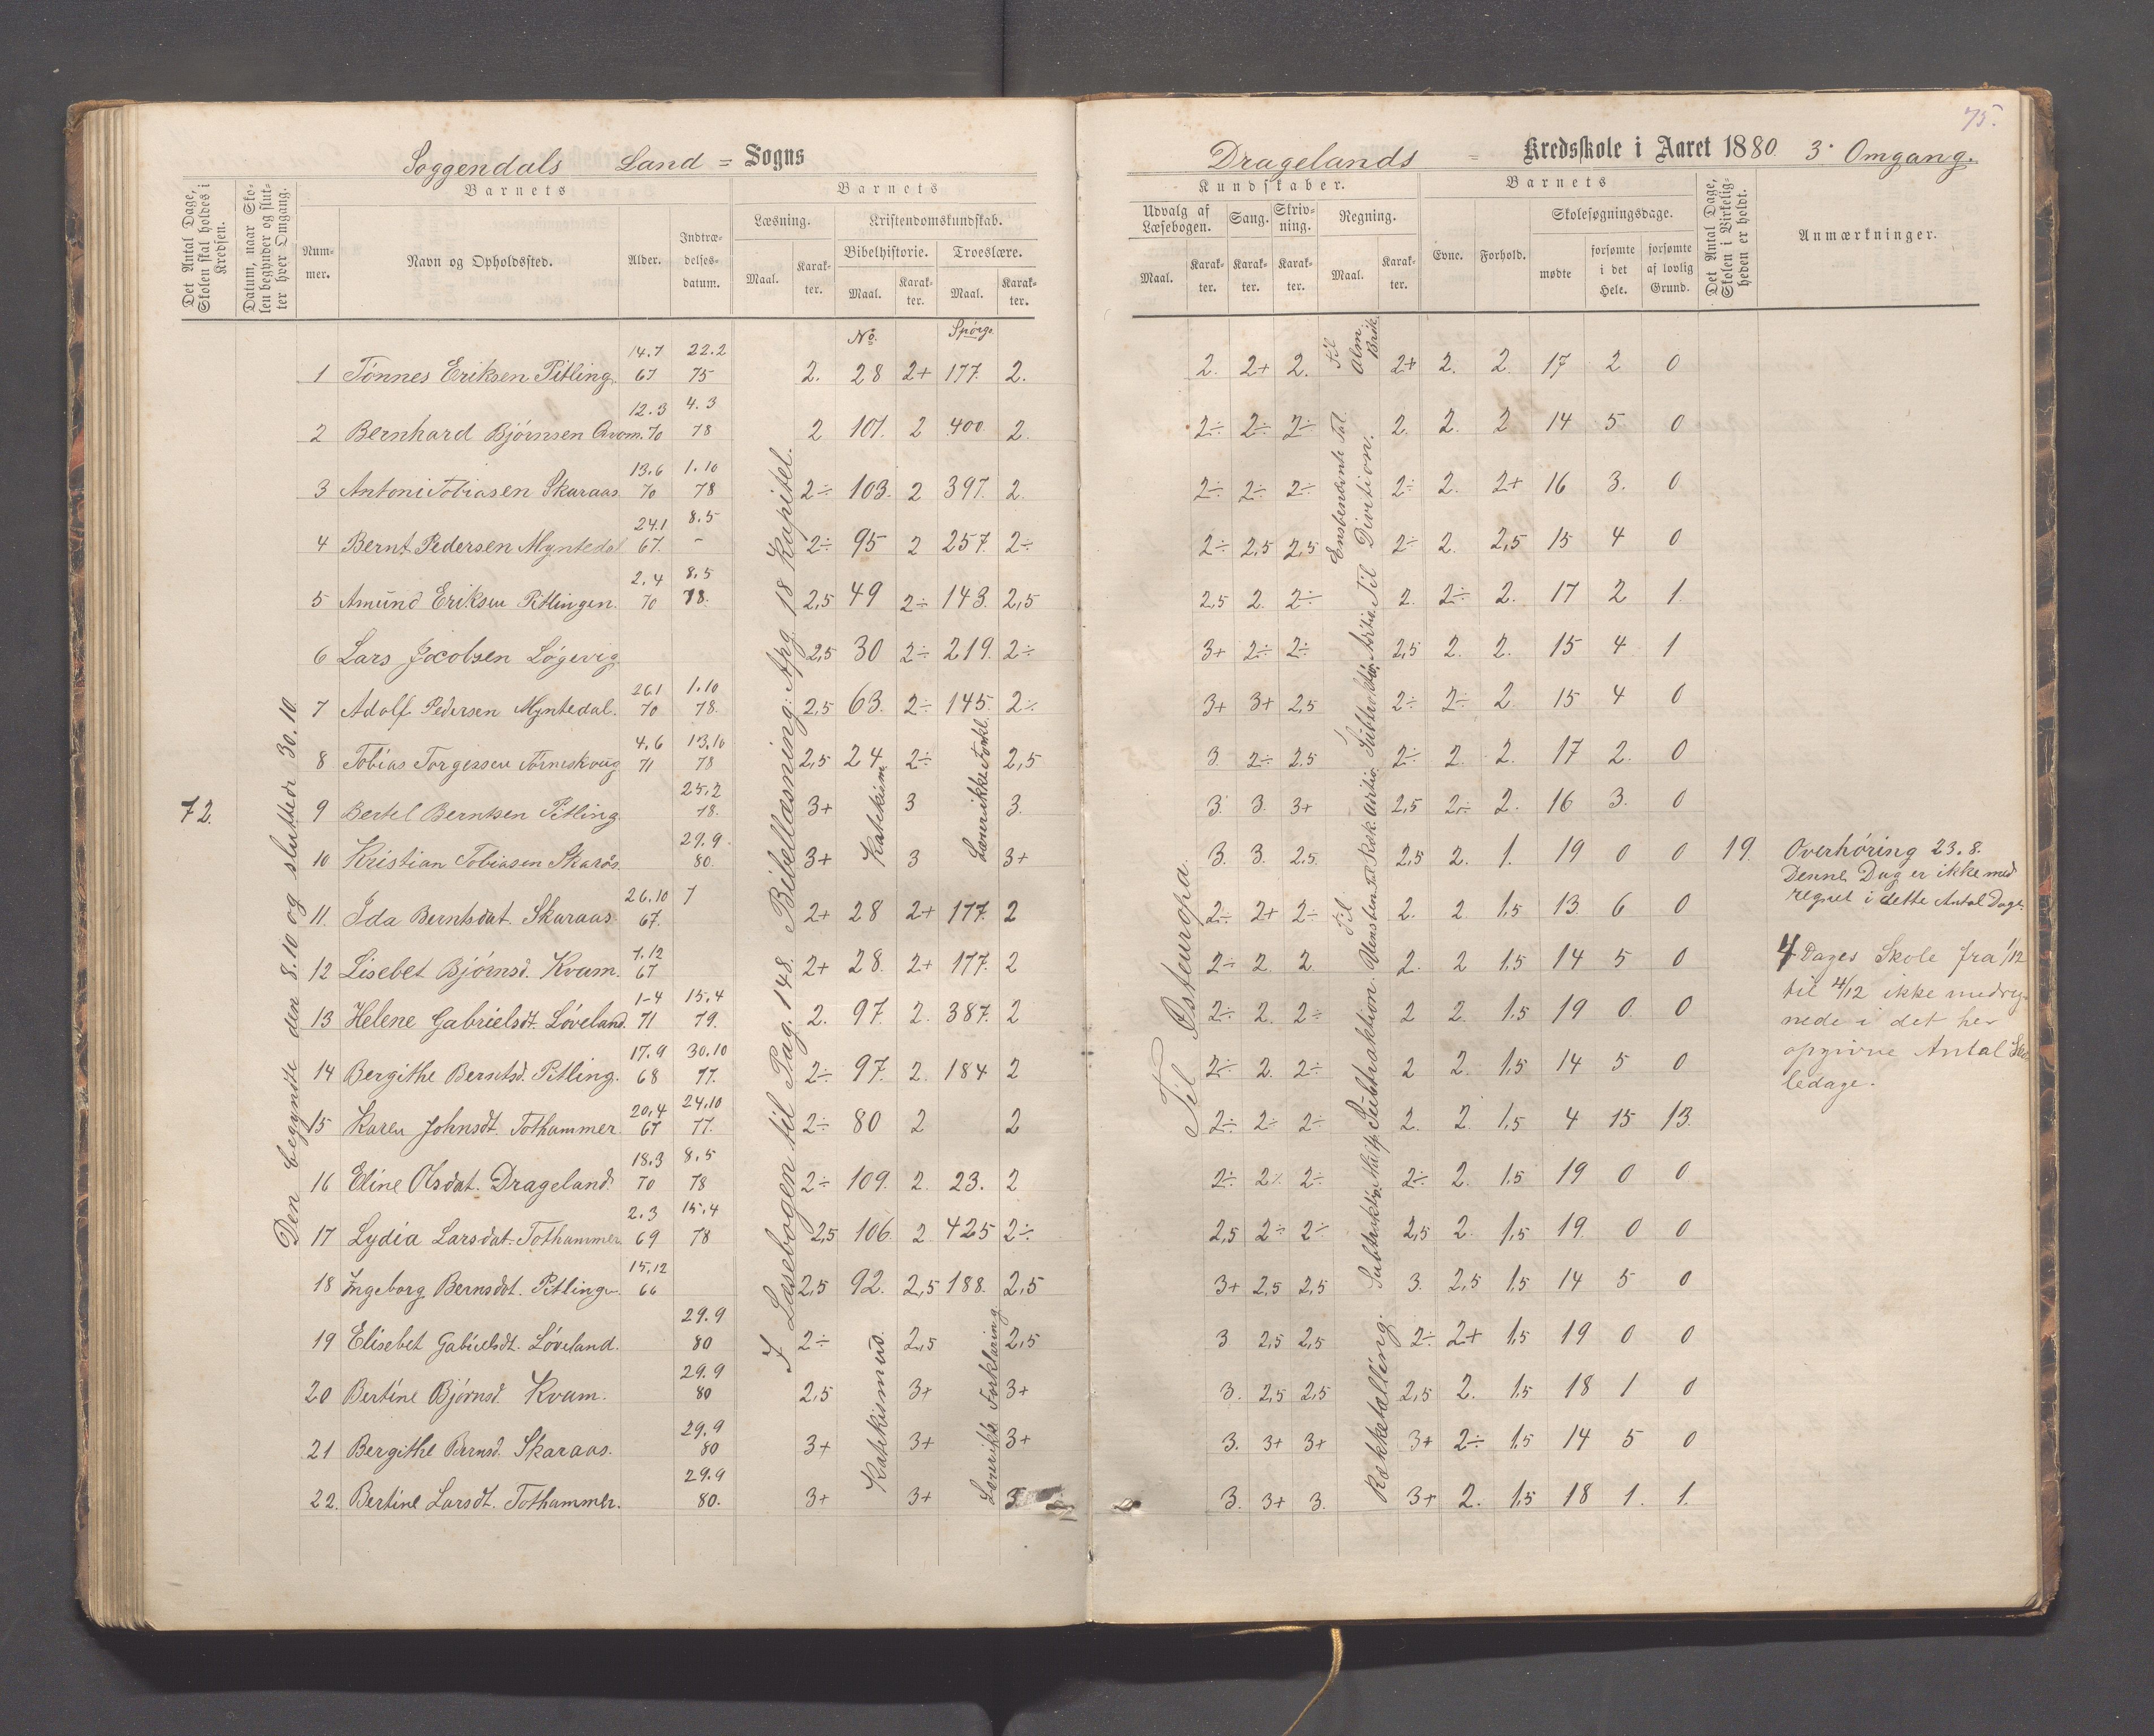 75.
Soggendals Land = Sogns
Dragelands = Kredsskole i Aaret 1880. 3. Omgang.
Det Antal Dage, Skolen skal holdes i Kredsen.
Datum, naar Skolen begynder og slutter hver Omgang.
Barnets
Nummer.
Navn og Opholdssted.
Alder.
Indtrædelsesdatum.
Barnets
Læsning.
Maal.
Karakter.
Kristendomskundskab.
Bibelhistorie.
Maal.
Karakter.
Troeslære.
Maal.
Karakter.
Kundskaber.
Udvalg af Læsebogen.
Maal.
Karakter.
Sang.
Karakter.
Skrivning.
Karakter.
Regning.
Maal.
Karakter.
Barnets
Evne.
Forhold.
Skolesøgningsdage.
mødte
forsømte i det Hele.
forsømte af lovlig Grund.
Det Antal Dage, Skolen i Virkeligheden er holdt.
Anmærkninger.
No. Spørgs.
72.
Den begyndte den 8.10 og sluttede 30.10.
I Læsebogen til Pag. 148. Bibellæsning: Apg 18 Kapitel.
Til Østeuropa.
1 Tønnes Eriksen Pitling. 14.7 67 22.2 75 2. 28 2+ 177. 2. 2. 2+ 2. 2+ 2. 2. 17 2 0
2 Bernhard Bjørnsen Qvam. 12.3 70 4.3 78 2 101. 2 400 2. 2÷ 2÷ 2÷ 2. 2. 2 14 5 0
3 Antoni Tobiasen Skaraas 13.6 70 1.10 78 2÷ 103. 2 397. 2. 2÷ 2÷ 2÷ 2÷ 2. 2+ 16 3. 0
4 Bernt Pedersen Myntedal 24.1 67. 8.5 - 2÷ 95 2 257. 2÷ 2÷ 2,5 2,5 2÷ 2. 2,5 15 4 0
5 Amund Eriksen Pitlingen. 2.4 70 8.5 78. 2,5 49 2÷ 143. 2,5 2,5 2. 2÷ 2. 2÷ 2. 17 2 1.
6 Lars Jacobsen Løgevig. 2,5 30 2÷ 219. 2÷ 3+ 2÷ 2÷ 2,5 2. 2. 15 4 1
7 Adolf Pedersen Myntedal. 26.1 70 1.10 78. 2,5 63. 2÷ 145. 2÷ 3+ 3+ 2,5 2÷ 2÷ 2. 15 4 0
8 Tobias Torgersen 4.6 71 13.10 78 2,5 24 2÷ 2,5 3. 2÷ 2.5 2÷ 2. 2. 17 2. 0
9 Bertel Berntsen Pitling 25.2 78. 3+ 3 3. 3. 3. 3+ 2,5 2÷ 2. 16 3. 0
10 Kristian Tobiasen Skarås. 29.9. 80. 3+ 3 3+ 3. 3. 2.5. 2,5 2. 1. 19 0 0 19.
11. Ida Berntsdat. Skaraas 26.10 67. 7 2+ 28 2+ 177. 2 2÷ 2+ 2÷ 2. 2. 1,5 13. 6 0
12 Lisebet Bjørnsd. Kvam. 7.12 67 2+ 28. 2+ 177. 2 2÷ 2 2 2. 2 1.5 14 5 0
13 Helene Gabrielsdt. Løveland. 1-4 71 15.4 79. 2. 97. 2. 387. 2 2÷ 2. 2÷ 2 2. 1.5 19 0. 0
14 Bergithe Berntsd. Pitling. 17.9 68 30.10 77. 2÷ 97. 2. 184 2 2÷ 2. 2÷ 2 2. 1,5 14 5 0
15 Karen Johnsdt. Tothammer 20.4 67 24.10 77. 2÷ 80 2 2 2÷ 2÷ 2÷ 2. 2. 1,5 4 15 13.
16 Eline Olsdat. Drageland. 18.3 70 8.5 78 2÷ 109. 2. 23. 2 2÷ 2÷ 2÷ 2÷ 2. 1.5 19 0 0
17 Lydia Larsdat. Tothammer 2.3 69 15.4 78 2,5 106. 2. 425 2÷ 2,5 2÷ 2÷ 2,5 2. 1,5 19. 0 0
18 Ingeborg Bernsdt. Pitling. 15.12 66 2,5 92. 2,5 188. 2,5 3+ 2,5 2,5 3. 2,5 1,5 14 5 0
19 Elisebet Gabrielsdt. Løveland. 29.9 80 2÷ 2,5 2,5 3 2,5 2,5 2÷ 2+ 1,5 19 0 0
20 Bertine Bjørnsd. Kvam. 29.9 80 2,5 3+ 3+ 3. 2,5 2,5 2,5 2. 1,5 18 1 0
21 Bergithe Bernsd. Skaraas. 29.9 80 3+ 3+ 3+ 3. 3+ 3+ 3+ 2÷ 1,5 14 5 0
22. Bertine Larsdt. Tothammer. 29.9 80. 3+ 3+ 3 3. 3+ 3. 3+ 2. 1,5 18 1. 1.
Katekism.
Lærerikke Forkl.
Katekismus.
Lærerikke Forklaring
Til Alm. Brik.
Ensbenævnte Tal
Til Division.
Subtraktion.
Rækketælling.
Overhøring 23.8.
Denne Dag er ikke med
regnet i dette Antal Dage.
4 Dages Skole fra 1/12
til 4/12 ikke medreg-
nede i det her
opgivne Antal Sko-
ledage.